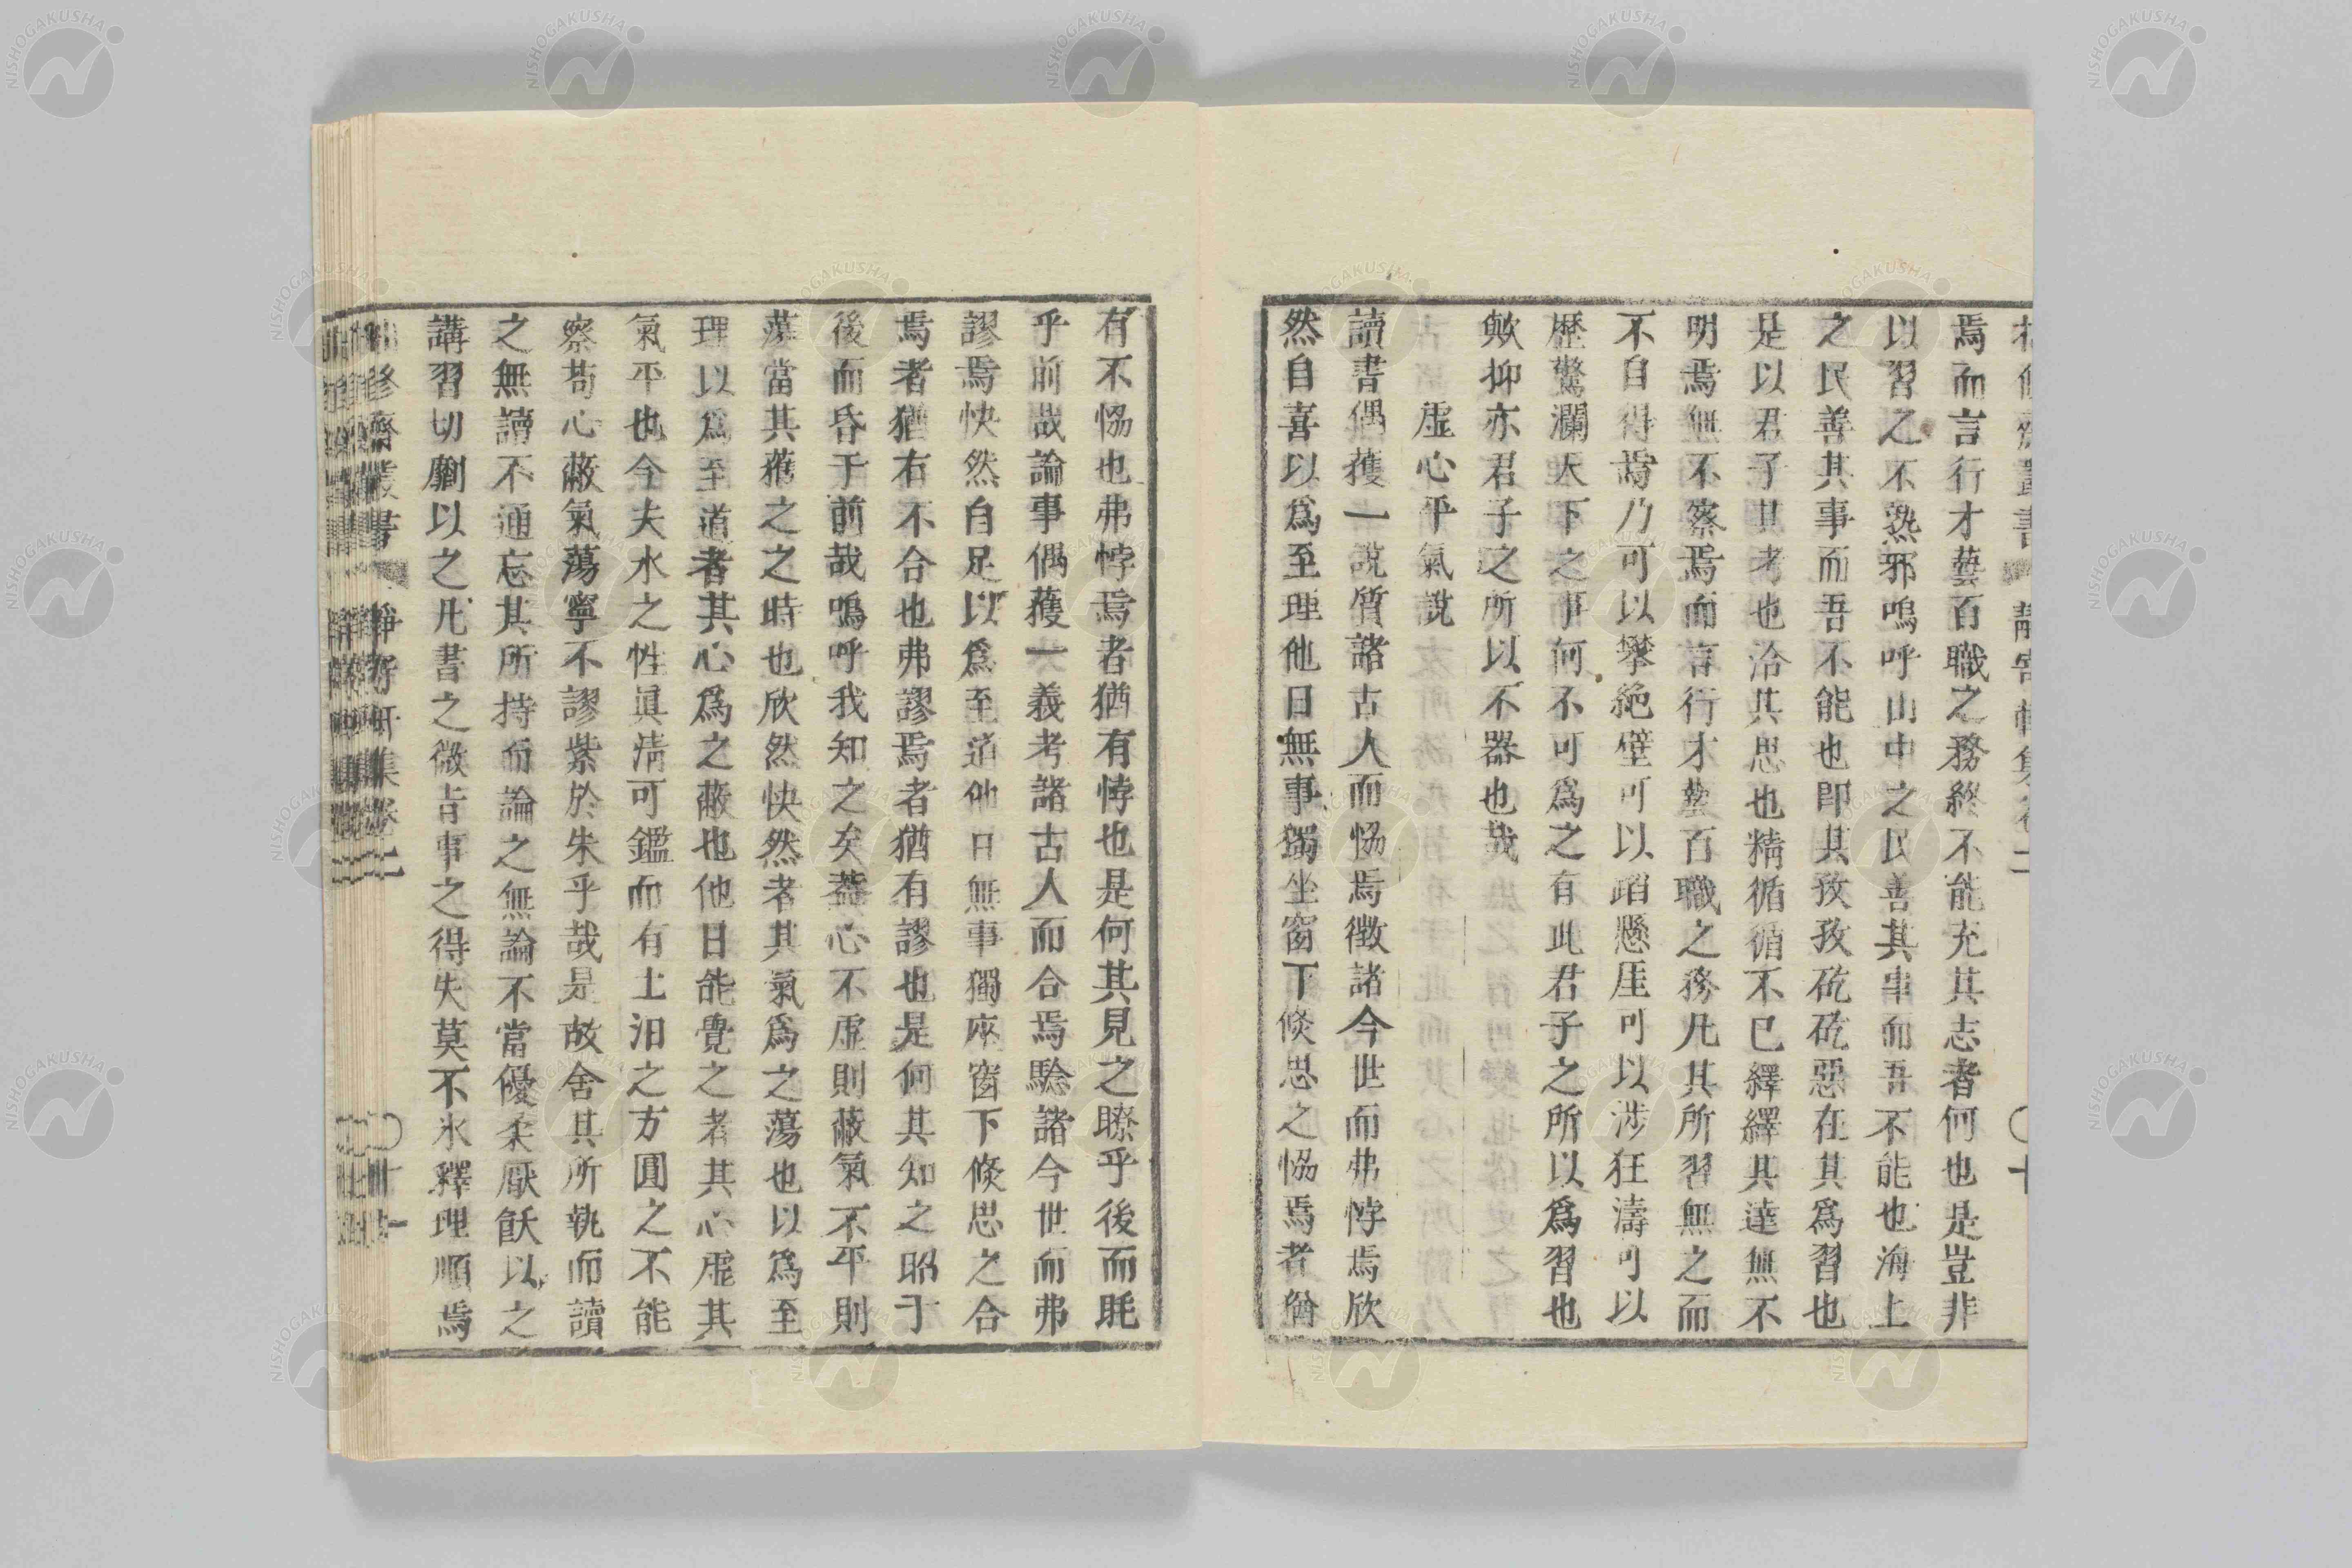 焉而言行才藝百職之務終不能充其志者何也是豈非
以習之不熟邪嗚呼山中之民善其事而吾不能也海上
之民善其事而吾不能也卽其孜孜矻矻惡在其爲習也
是以君子其考也洽其思也精循循不已繹繹其達無不
明焉無不察焉而言行才藝百職之務凡其所習無之而
不自得焉乃可以攀絶壁可以蹈懸厓可以涉狂濤可以
歷驚瀾天下之事何不可爲之有此君子之所以爲習也
歟抑亦君子之所以不器也哉
虛心平氣說
讀書偶獲一說質諸古人而恊焉徵諸今世而弗悖焉欣
然自喜以爲至理他日無事獨坐窗下倐思之恊焉者猶
有不恊也弗悖焉者猶有悖也是何其見之瞭乎後而眊
乎前哉論事偶獲一義考諸古人而合焉驗諸今世而弗
謬焉快然自足以爲至道他日無事獨座窗下倐思之合
焉者猶有不合也弗謬焉者猶有謬也是何其知之昭于
後而昏于前哉嗚呼我知之矣蓋心不虛則蔽氣不平則
蕩當其獲之之時也欣然快然者其氣爲之蕩也以爲至
理以爲至道者其心爲之蔽也他日能覺之者其心虛其
氣平也今夫水之性眞淸可鑑而有土汨之方圓之不能
察苟心蔽氣蕩寧不謬紫於朱乎哉是故舍其所執而讀
之無讀不通忘其所持而論之無論不當優柔厭飫以之
講習切劘以之凡書之微旨事之得失莫不氷釋理順焉
修齊叢書